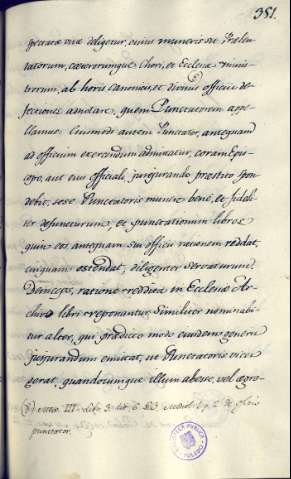 381.
spectatæ vitæ deligetur, cuius muneris sit Prælen-
tatorum, cæterorumque Chori, et Ecclesiæ minis-
trorum, ab horis Canonicis, et divinis officiis de-
fectiones adnotare, quem Punctatorem appe-
llamus: Eiusmodi autem Punctator, antequam
ad officium exercendum admittatur, coram Epis-
copo, aut eius officiale, jurejurando præstito spon-
debit, sese Punctatoris munere bene, et fideli-
ter defuncturum, et punctationum libros
quin eos antequam sui officii rationem reddat,
cuiquam ostendat, diligenter servaturum.
Deinceps, ratione reddita in Ecclesiæ Ar-
chivo libri reponantur. Similiter nominabi-
tur alter, qui prædicto modo eiusdem generis
jusjurandum emittat, ut Punctatoris vices
gerat, quandocumque illum abesse, vel ægro-
III lib. 3. tit. 6.
punctator.